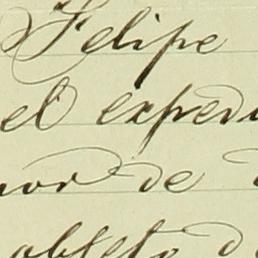 Felipe
el expedi
nor de
objeto d